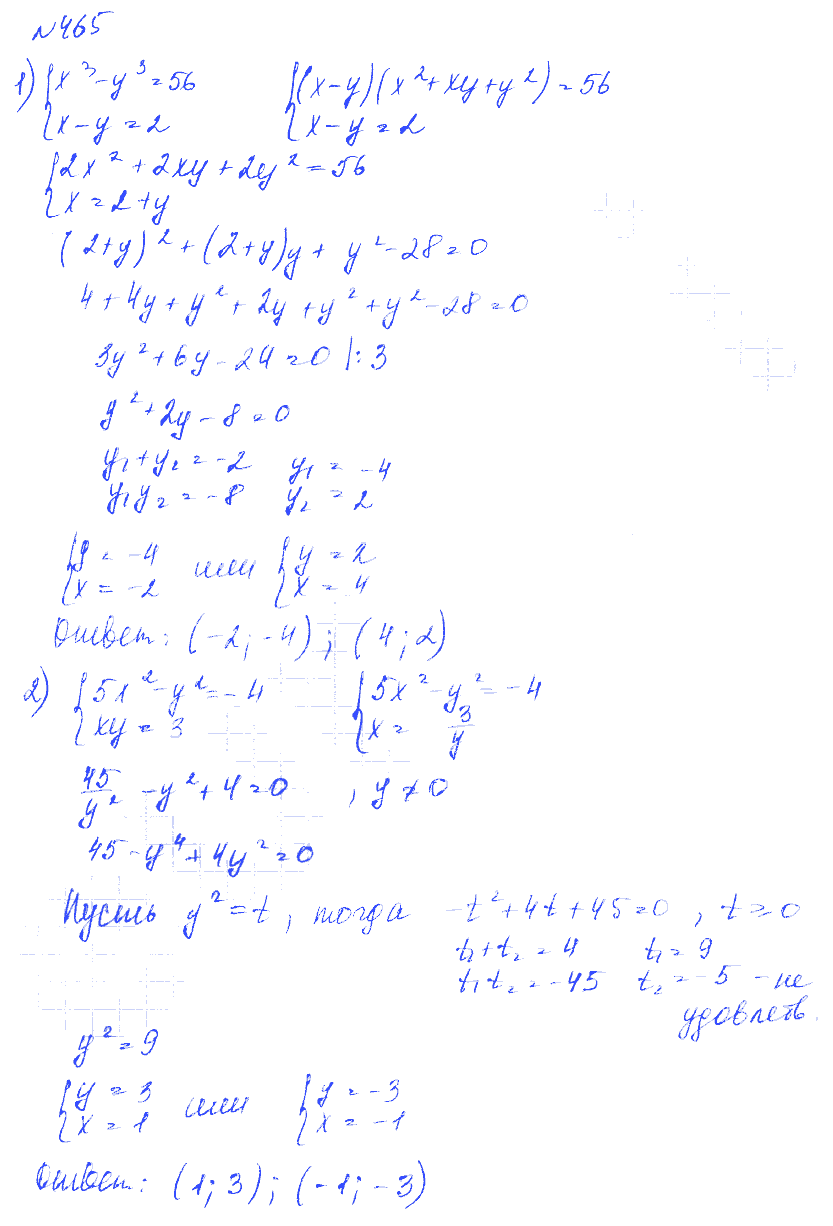 №465
1) {x³-y³=56   {(x-y)(x²+xy+y²)=56
{x-y=2   {x-y=2
{2x²+2xy+2y²=56
{x=2+y
(2+y)²+(2+y)y+y²-28=0
4+4y+y²+2y+y²+y²-28=0
3y²+6y-24=0 |:3
y²+2y-8=0
y₁+y₂=-2   y₁=-4
y₁y₂=-8   y₂=2
{y=-4 или {y=2
{x=-2   {x=4
Ответ: (-2;-4); (4;2)
2) {5x²-y²=-4   {5x²-y²=-4
{xy=3   {x=3/y
45/y²-y²+4=0, y≠0
45-y⁴+4y²=0
Пусть y²=t, тогда -t²+4t+45=0, t≥0
t₁+t₂=4   t₁=9
t₁t₂=-45   t₂=-5 -не
удовлетв.
y²=9
{y=3 или {y=-3
{x=1   {x=-1
Ответ: (1;3); (-1;-3)